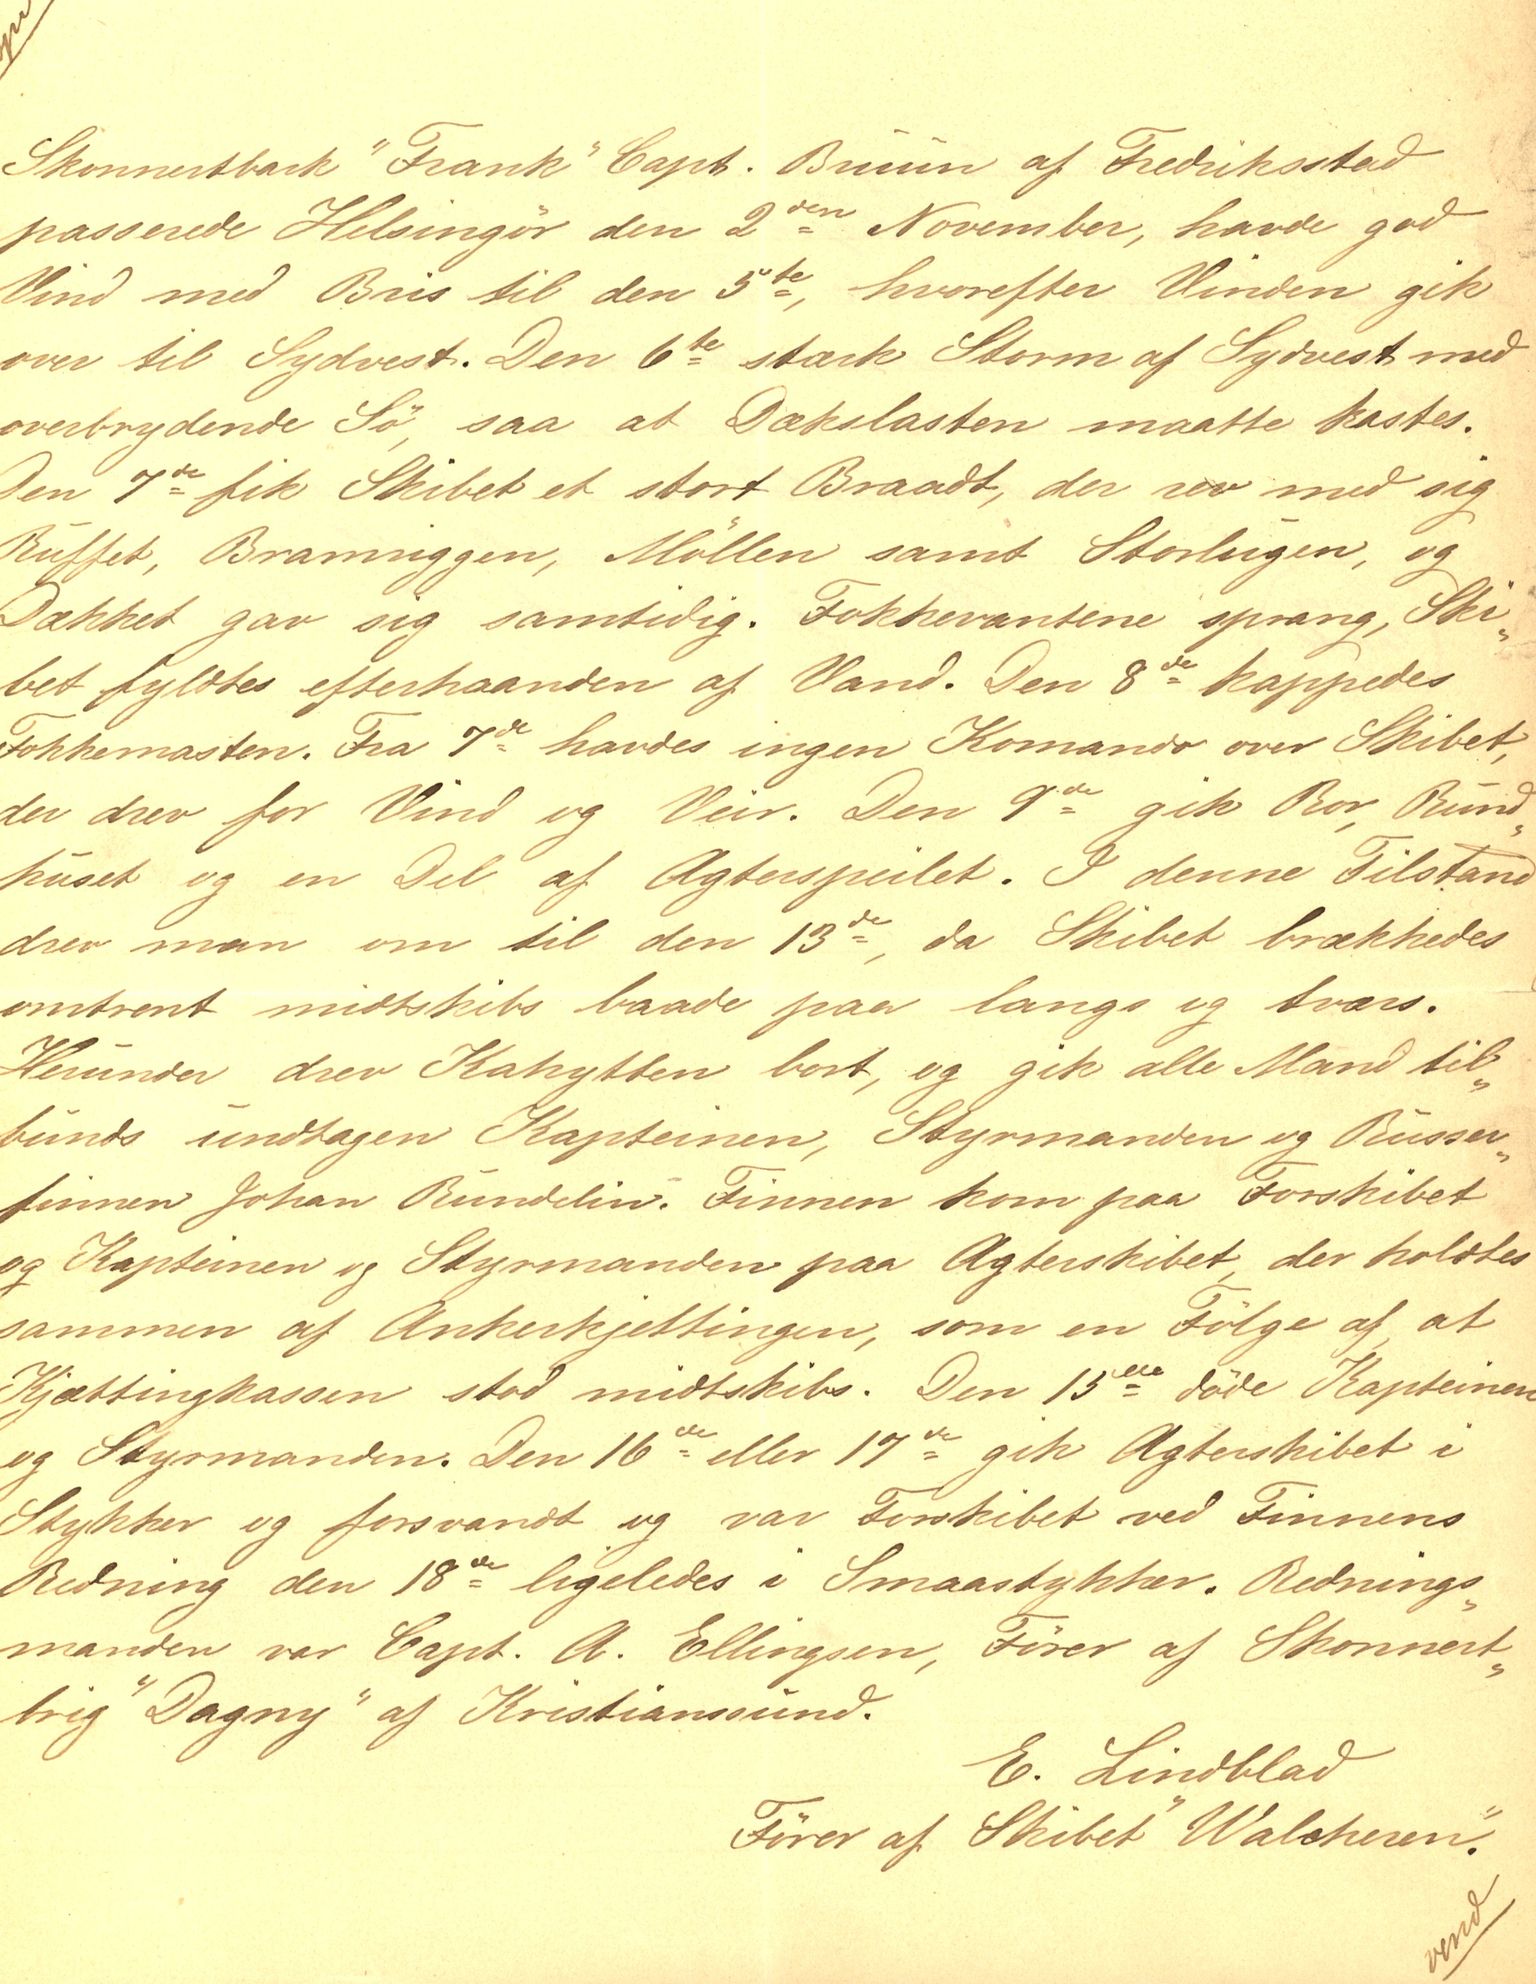 Skonnertbark "Frank" Capt. Bruun af Fredriksstad
passerede Helsingör den 2den November, havde god
Vind med Bris til den 5te, hvorefter Vinden gik
over til Sydvest. Den 6te stærk Storm af Sydvest med
overbrydende Sö, saa at Dækslasten maatte kastes.
Den 7de fik Skibet et stort Braadt, der rev med sig
Ruffet, Bramriggen, Möllen samt Storlugen, og
Dækket gav sig samtidig. Fokkevantene sprang, Ski„
bet fyldtes efterhaanden af Vand. Den 8de kappedes
Fokkemasten. Fra 7de havdes ingen Komando over Skibet,
der drev for Vind og Veir. Den 9de gik Ror, Rund„
huset og en Del af Agterspeilet. I denne Tilstand
drev man om til den 13de, da Skibet brækkedes
omtrent midtskibs baade paa langs og tværs.
Herunder drev Kahytten bort, og gik alle Mand til„
bunds undtagen Kapteinen, Styrmanden og Russer„
finnen Johan Rundelin. Finnen kom paa Forskibet
og Kapteinen og Styrmanden paa Agterskibet, der holdtes
sammen af Ankerkjettingen, som en Fölge af, at
Kjættingkassen stod midtskibs. Den 15de döde Kapteinen
og Styrmanden. Den 16de eller 17de gik Agterskibet i
Stykker og forsvandt og var Forskibet ved Finnens
Redning den 18de ligeledes i Smaastykker. Rednings„
manden var Capt. A. Ellingsen, Förer af Skonnert„
brig "Dagny" af Kristianssund.
E. Lindblad
Förer af Skibet "Walcheren".
vend